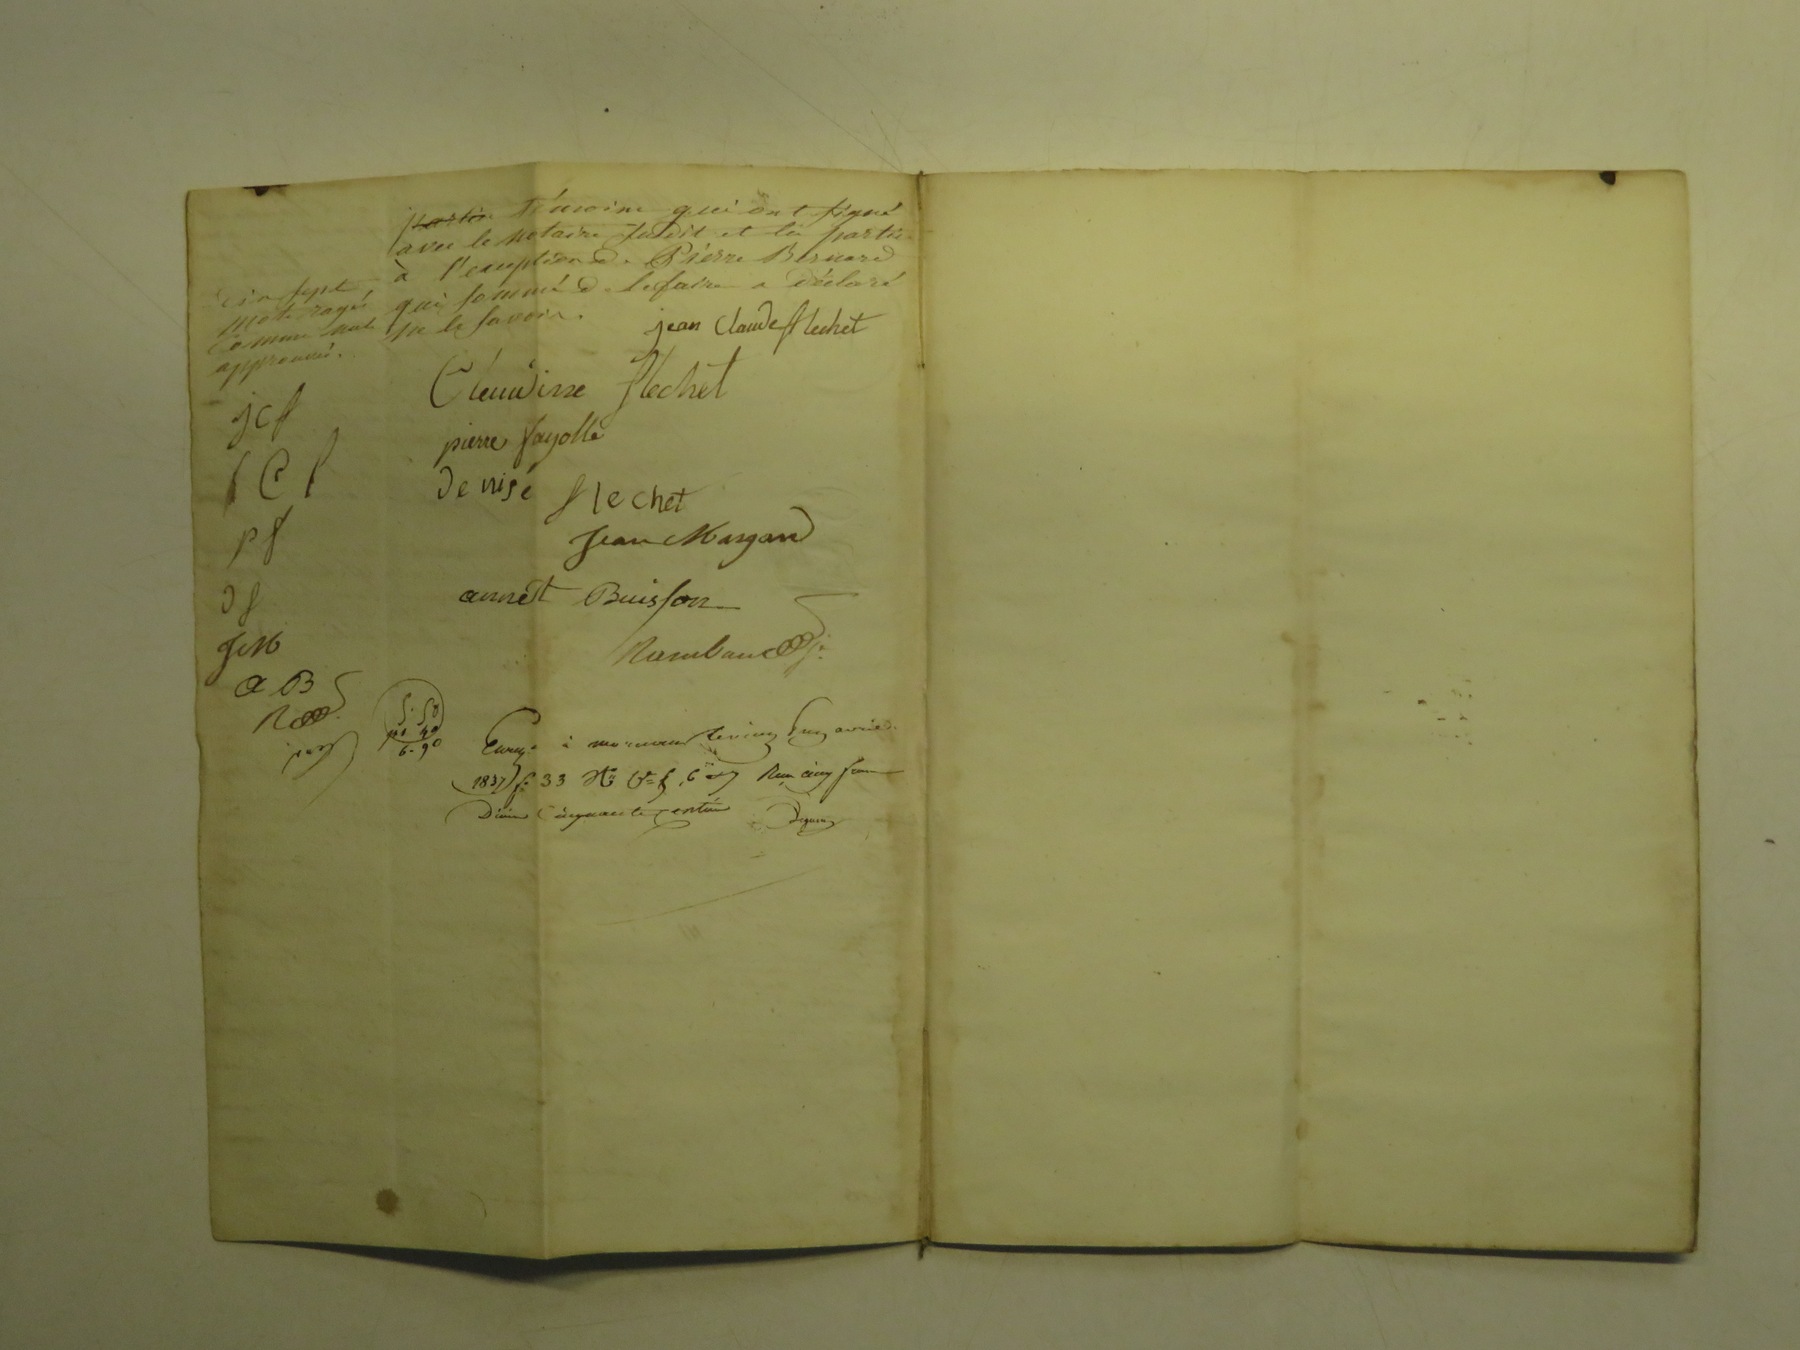 témoins qui ont signé
avec le notaire susdit et les parties
à l'exception de Pierre Bernard
qui sommé de le faire a déclaré
ne le savoir.
sept
mots rayés
comme nuls
approuvés.
jean Claude flechet
Claudine flechet
pierre fayolle
Denise flechet
Jean Margand
annet Buisson
Rambaud
jcf
f C f
pf
Df
JM
a B
5. 50
40
6. 90
à mornand le cinq avril
1837 f° 33 Reçu cinq francs
Dixième Cinquante centimes